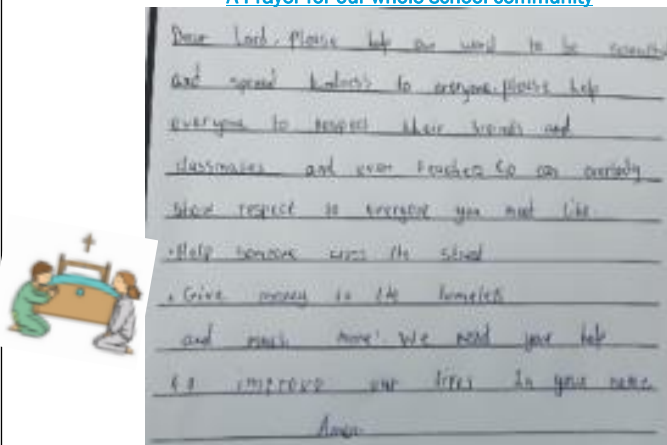 A Prayer for our whole school community
Dear Lord, Please help our world to be
and spread kindness to everyone. please help
everyone to respect their friends and
classmates and even teachers so can everbody
show respect to everyone you meet like
• Help someone cross the street
• Give money to the homeless
and much more! We need your help
to improve our lives In your name
Amen